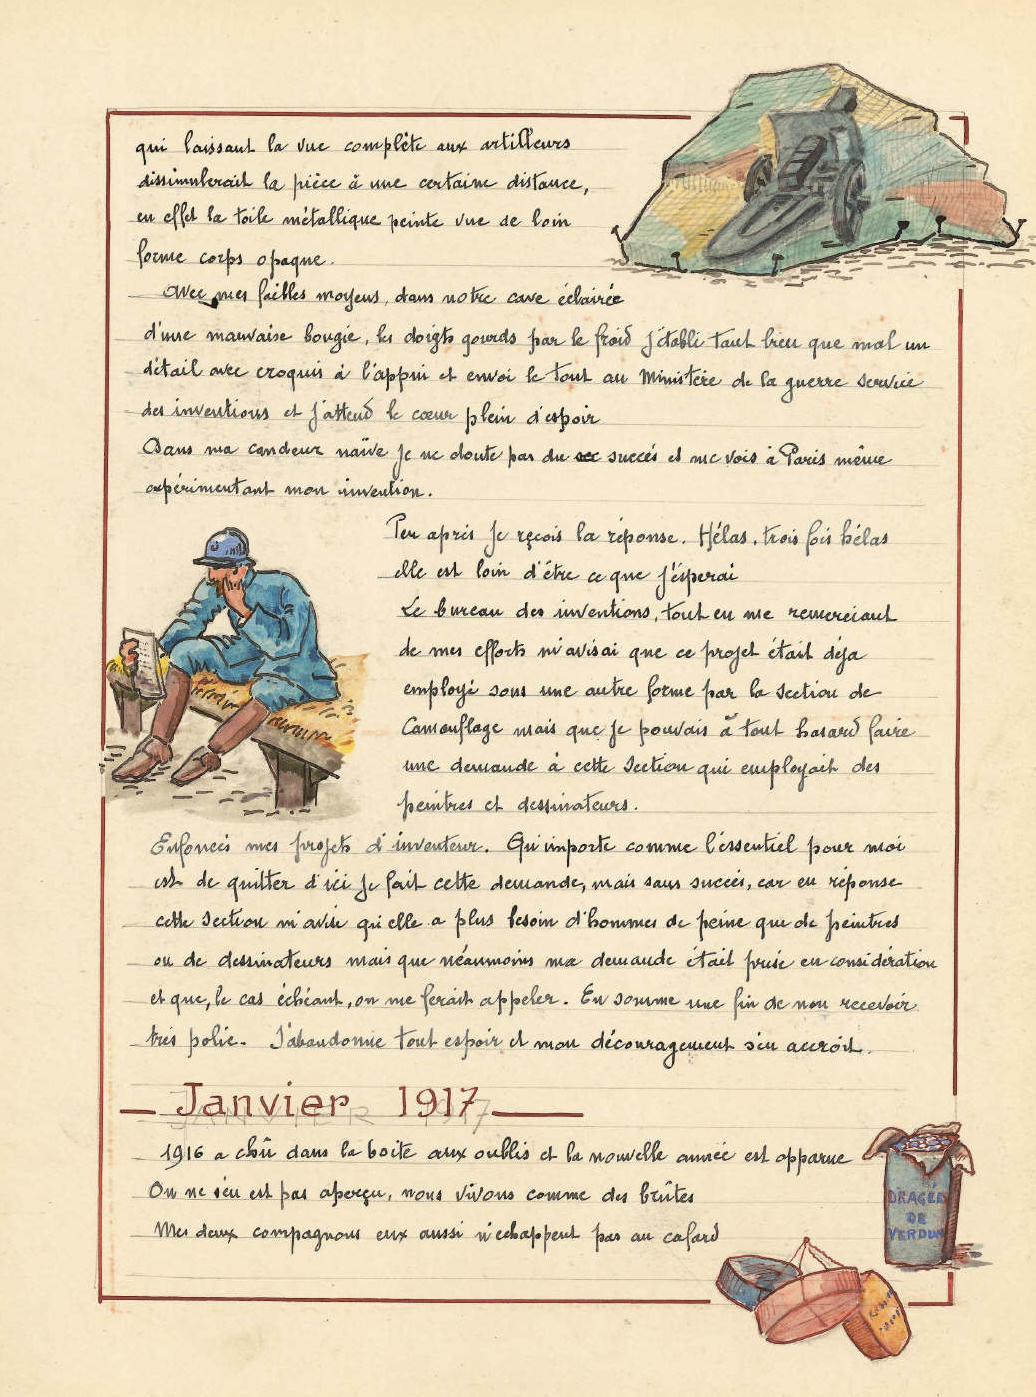 qui laissant la vue complète aux artilleurs
dissimulerait la pièce à une certaine distance,
en effet la toile métallique peinte vue de loin
forme corps opaque.
Avec mes faibles moyens, dans notre cave éclairée
d'une mauvaise bougie, les doigts gourds par le froid j'établi tant bien que mal un
détail avec croquis à l'appui et envoi le tout au Ministère de la guerre service
des inventions et j'attend le cœur plein d'espoir
Dans ma candeur naïve je ne doute pas du succés et me vois à Paris même
expérimentant mon invention.
Peu aprés je reçois la réponse. Hélas, trois fois hélas
elle est loin d'être ce que j'esperai
Le bureau des inventions, tout en me remerciant
de mes efforts m'avisai que ce projet était déja
employé sous une autre forme par la section de
Camouflage mais que je pouvais à tout hasard faire
une demande à cette section qui employait des
peintres et dessinateurs.
Enfoncés mes projets d'inventeur. Qu'importe comme l'éssentiel pour moi
est de quitter d'ici je fait cette demande, mais sans succés, car en réponse
cette section m'avise qu'elle a plus besoin d'hommes de peine que de peintres
ou de dessinateurs mais que néanmoins ma demande était prise en considération
et que, le cas échéant, on me ferait appeler. En somme une fin de non recevoir
très polie. J'abandonne tout espoir et mon découragement s'en accroit.
Janvier 1917
1916 a chû dans la boite aux oublis et la nouvelle année est apparue
On ne s'en est pas aperçu, nous vivons comme des brûtes
Mes deux compagnons eux aussi n'echappent pas au cafard
DRAGÉE
DE
VERDUN